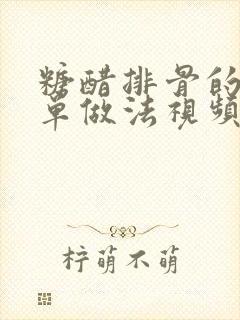 糖醋排骨的
单做法視頻
柠萌不萌